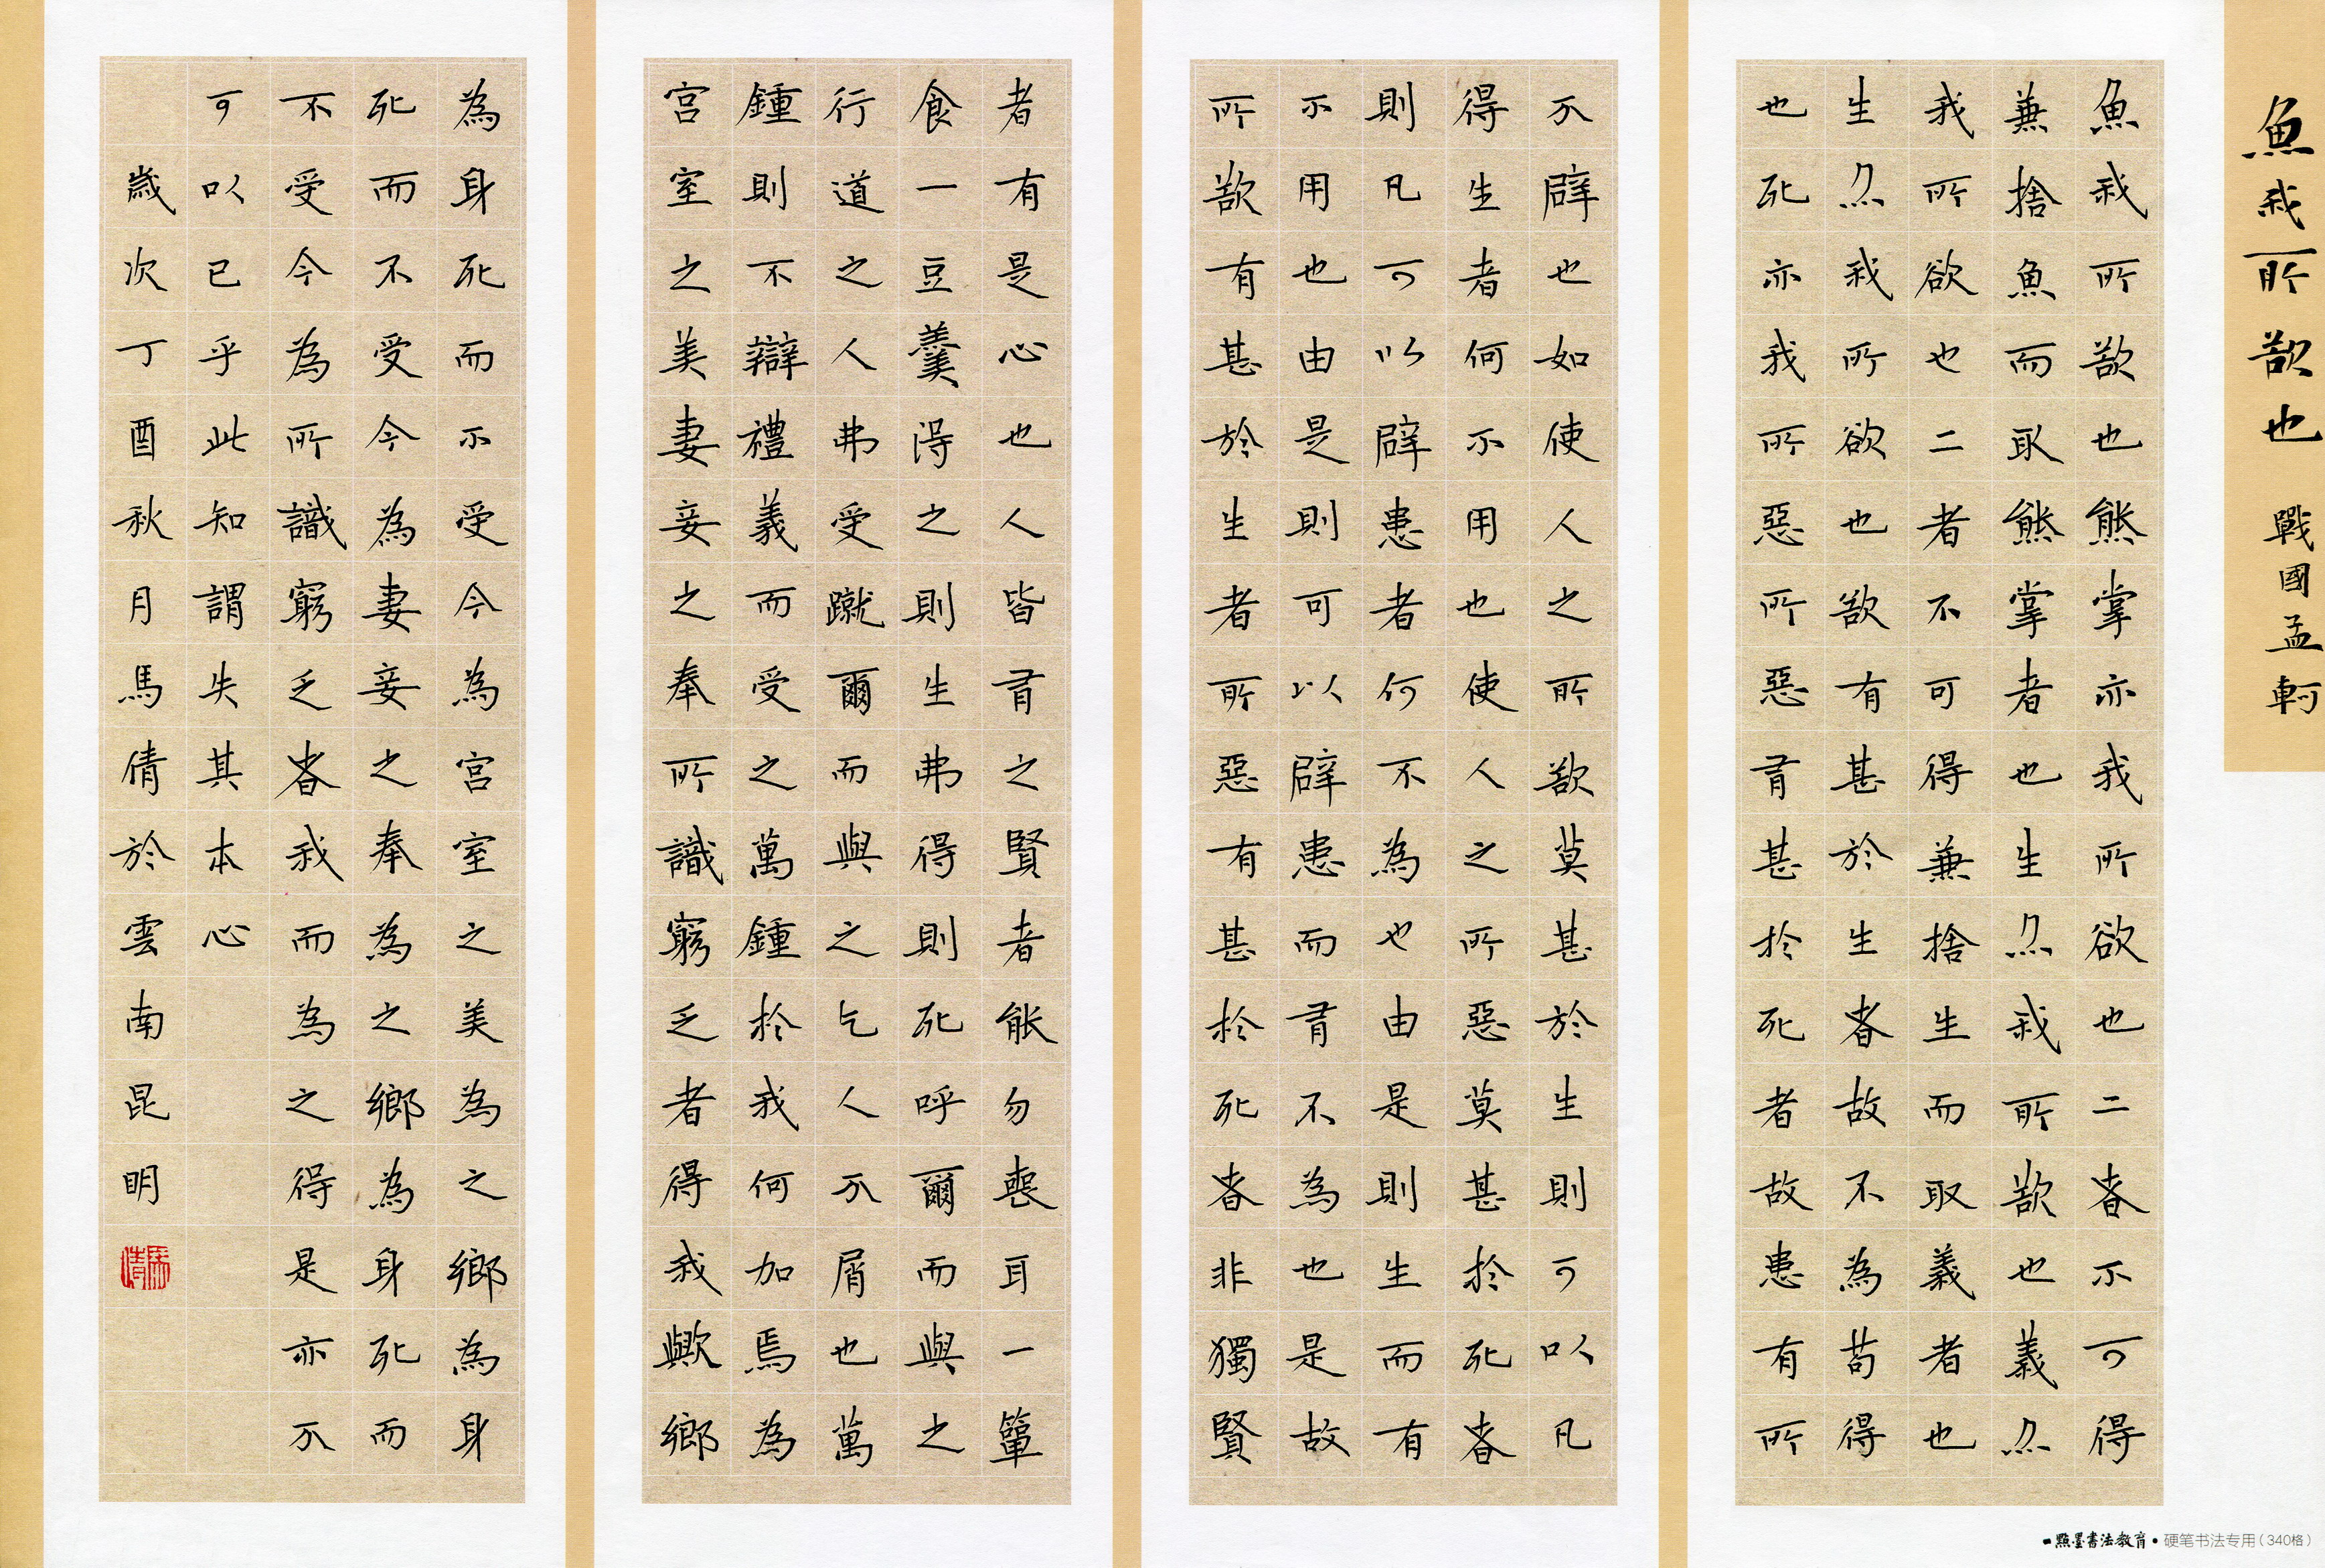 魚我所欲也 戰國孟軻
魚我所欲也熊掌亦我所欲也二者不可得
兼捨魚而取熊掌者也生亦我所欲也義亦
我所欲也二者不可得兼捨生而取義者也
生亦我所欲也欲有甚於生者故不為苟得
也死亦我所惡所惡有甚於死者故患有所
不辟也如使人之所欲莫甚於生則可以凡
得生者何不用也使人之所惡莫甚於死者
則凡可以辟患者何不為也由是則生而有
不用也由是則可以辟患而有不為也是故
所欲有甚於生者所惡有甚於死者非獨賢
者有是心也人皆有之賢者能勿喪耳一簞
食一豆羹得之則生弗得則死呼爾而與之
行道之人弗受蹴爾而與之乞人不屑也萬
鍾則不辯禮義而受之萬鍾於我何加焉為
宮室之美妻妾之奉所識窮乏者得我歟鄉
為身死而不受今為宮室之美為之鄉為身
死而不受今為妻妾之奉為之鄉為身死而
不受今為所識窮乏者我而為之得是亦不
可以已乎此知謂失其本心
歲次丁酉秋月馬倩於雲南昆明
馬倩
一點墨書法教育·硬笔书法专用(340格)